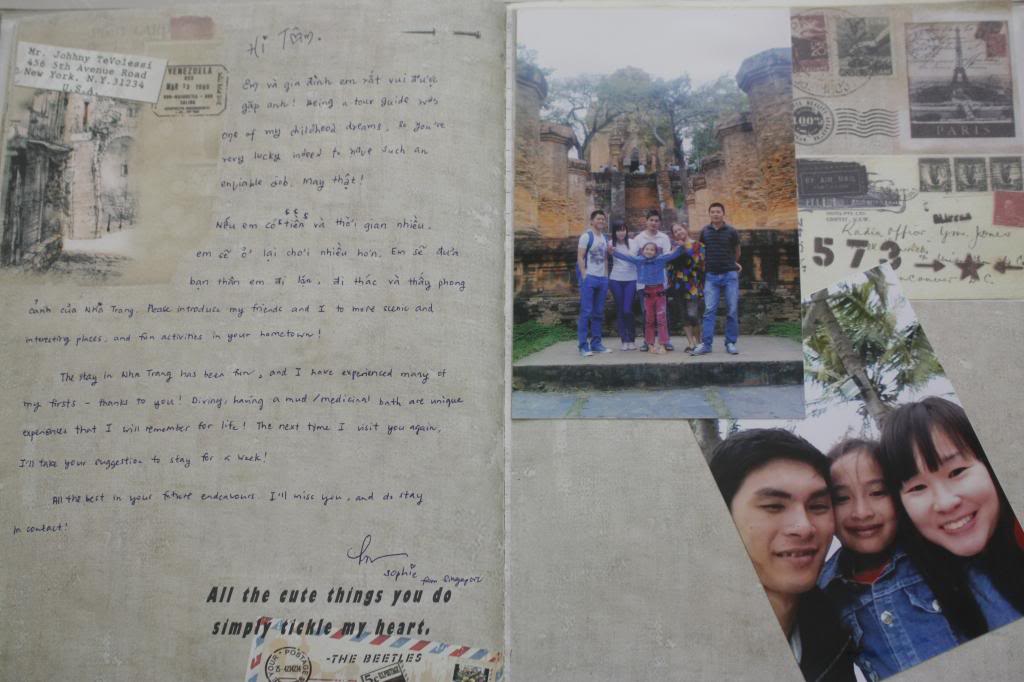 Mr. Johhny TeVolessi
456 5th Avenue Road
New York. N.Y.31234
U.S.A.
VENEZUELA
MAR 13
Hi Tâm.
Em và gia đình em rất vui được
gặp anh! Being a tour guide was
one of my childhood dreams, so you're
very lucky indeed to have such an
enviable job. May thật!
Nếu em có tiền và thời gian nhiều,
$ $ $
em sẽ ở lại chơi nhiều hơn. Em sẽ đưa
bạn thân em đi lặn, đi thác và thấy phong
cảnh của Nha Trang. Please introduce my friends and I to more scenic and
interesting places, and fun activities in your hometown!
The stay in Nha Trang has been fun, and I have experienced many of
my firsts - thanks to you! Diving, having a mud/medicinal bath are unique
experiences that I will remember for life! The next time I visit you again,
I'll take your suggestion to stay for a week!
All the best in your future endeavours. I'll miss you, and do stay
in contact!
Sophie from Singapore
All the cute things you do
simply tickle my heart.
-THE BEETLES
YOUR POSTAGE
PARIS
100%
BY AIR MAIL
573